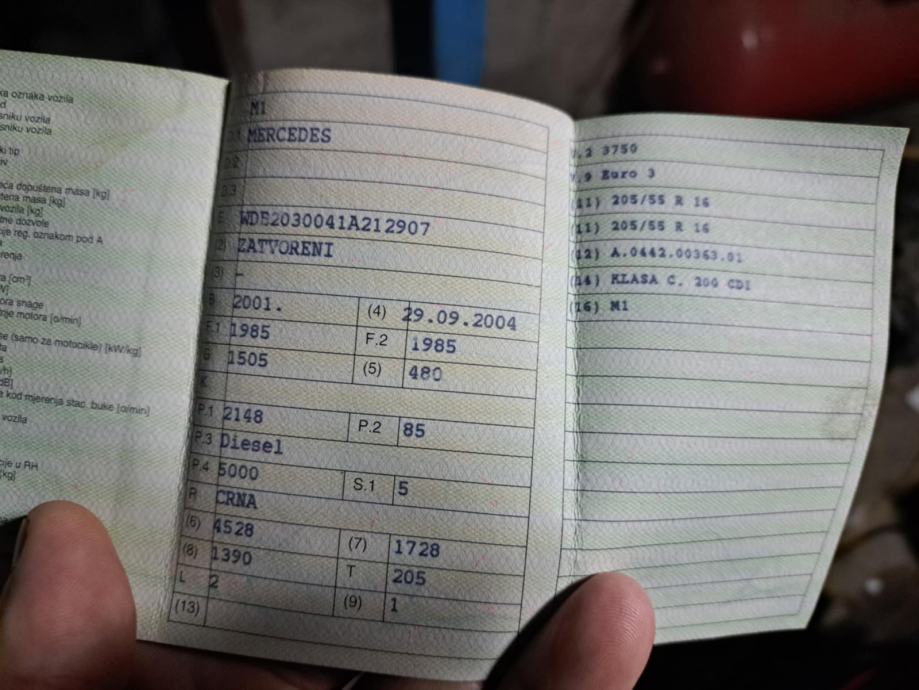 ka oznaka vozila
sniku vozila
sniku vozila
ki tip
eća dopuštena masa [kg]
tena masa [kg]
vozila [kg]
tne dozvole
oje reg. oznakom pod A
erenja
ra [cm³]
ora snage
tnje motora [o/min]
se (samo za motocikle) [kW/kg]
e kod mjerenja stac. buke [o/min]
vozila
cije u RH
[kg]
M1
D.1 MERCEDES
D.2
D.3
E WDB2030041A212907
(2) ZATVORENI
(3) -
B 2001. (4) 29.09.2004
F.1 1985 F.2 1985
G 1505 (5) 480
K
P.1 2148 P.2 85
P.3 Diesel
P.4 5000 S.1 5
R CRNA
(6) 4528 (7) 1728
(8) 1390 T 205
L 2 (9) 1
(13)
V.2 3750
V.9 Euro 3
(11) 205/55 R 16
(11) 205/55 R 16
(12) A.0442.00363.01
(14) KLASA C. 200 CDI
(16) M1